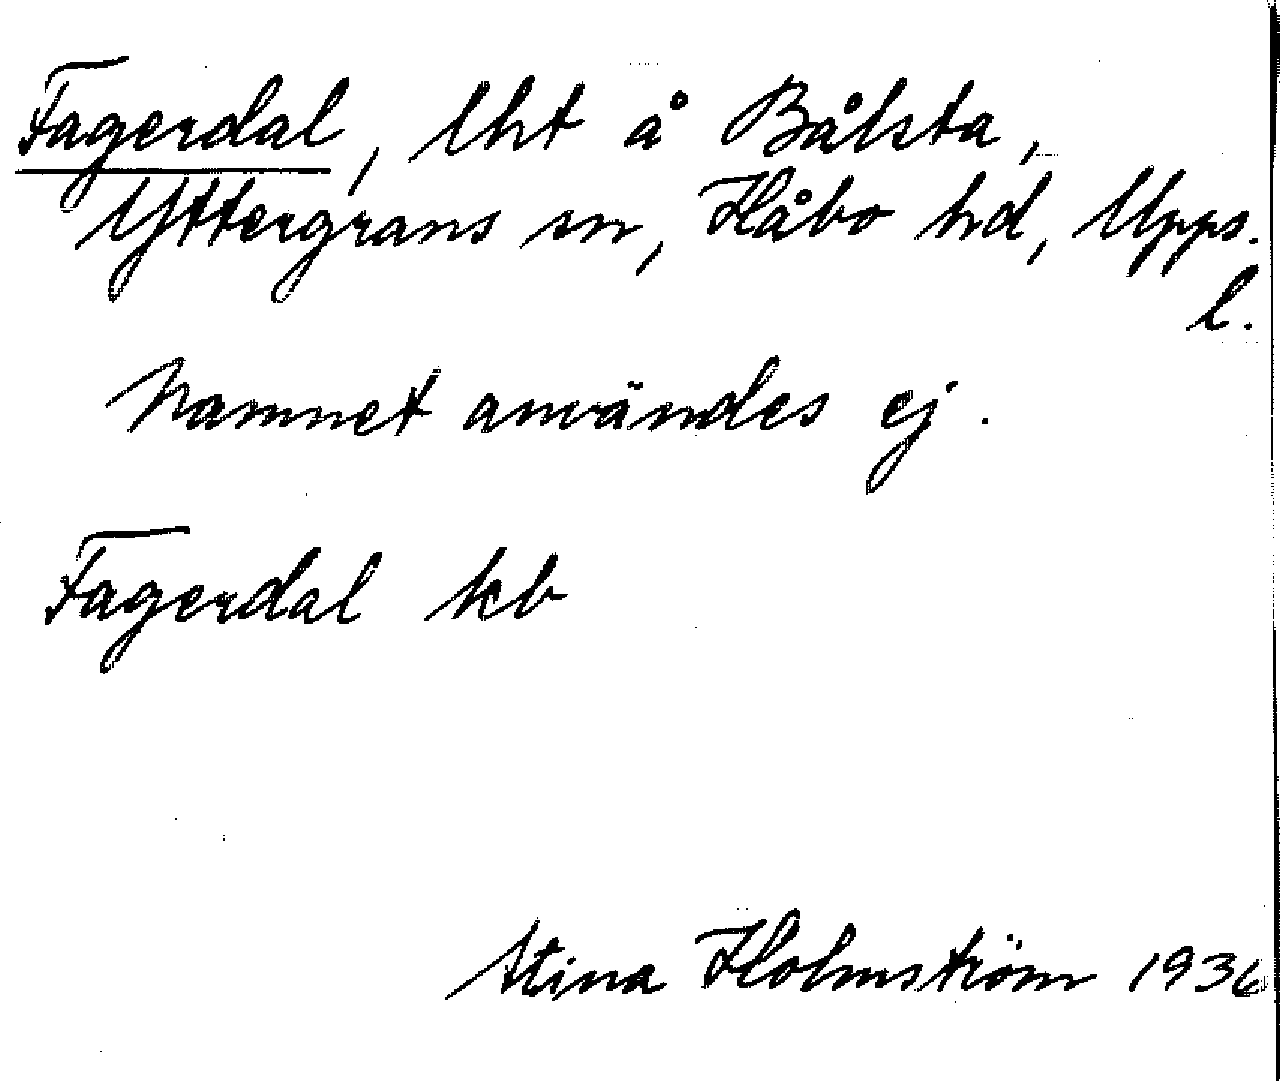 Fagerdal, lht å Bålsta,
Yttergrans sn, Håbo hd, Upps.
l.
Namnet användes ej.
Fagerdal kb
Stina Holmström 1936